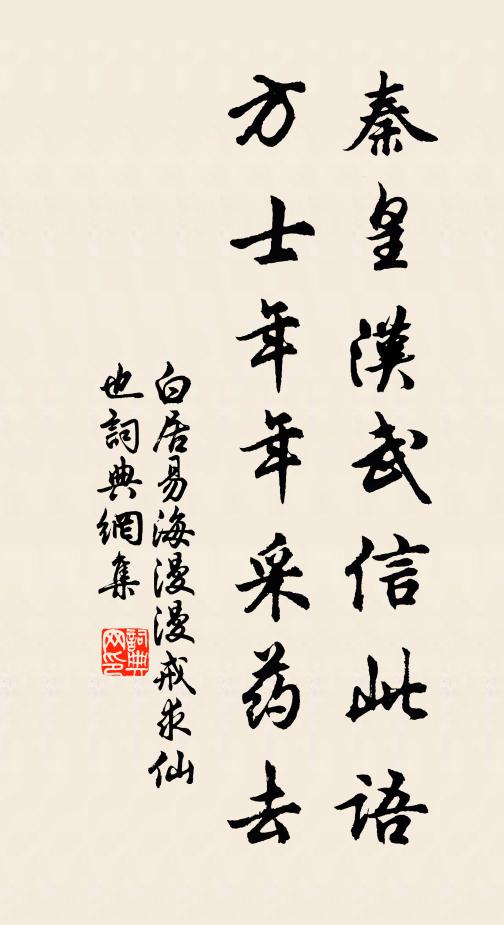 秦皇漢武信此語
方士年年采药去
白居易海漫漫戒求仙
也詞典網集
詞典网印